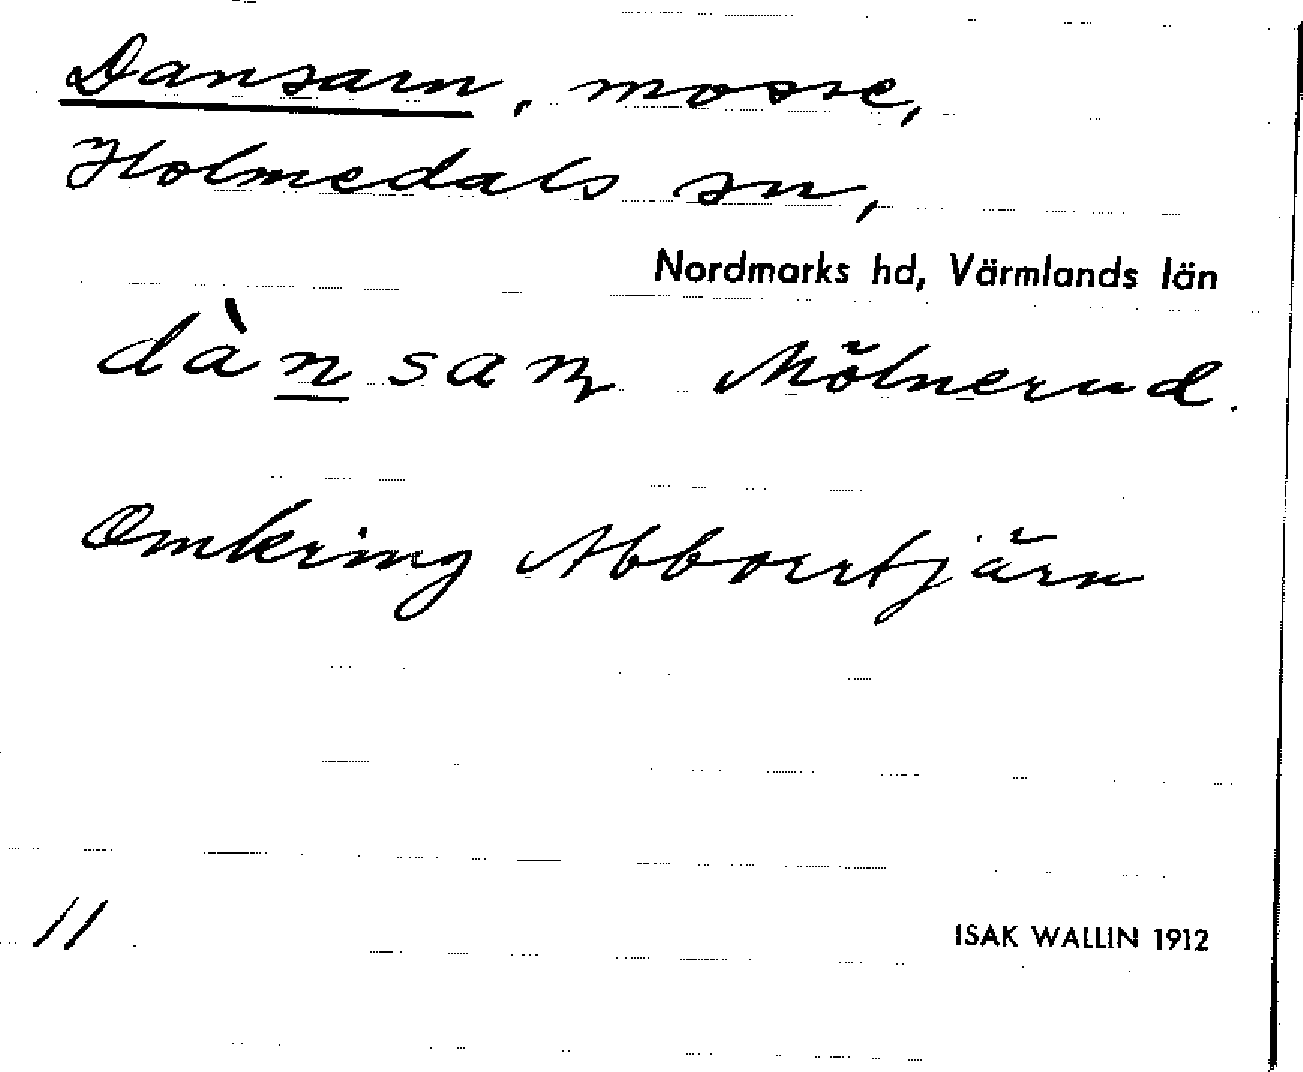 Dansarn, mosse,
Holmedals sn,
Nordmarks hd, Värmlands län
dànsaɳ Mölnerud.
Omkring Abborrtjärn
11
ISAK WALLIN 1912